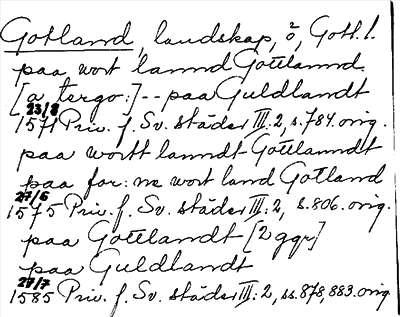 Gotland, landskap, ö, Gotl. l.
paa wort lannd Gottlannd.
[a tergo:] -- paa Guldlandt
23/8
1571 Priv. f. Sv. städer III:2, s. 784. orig.
paa wortt lanndt Gottlanndt
paa for: ne wort land Gotland
27/6
1575 Priv. f. Sv. städer III:2, s. 806. orig.
paa Gottlandt [2 ggr]
paa Guldlandt
27/7
1585 Priv. f. Sv. städer III:2, ss. 878, 883. orig.